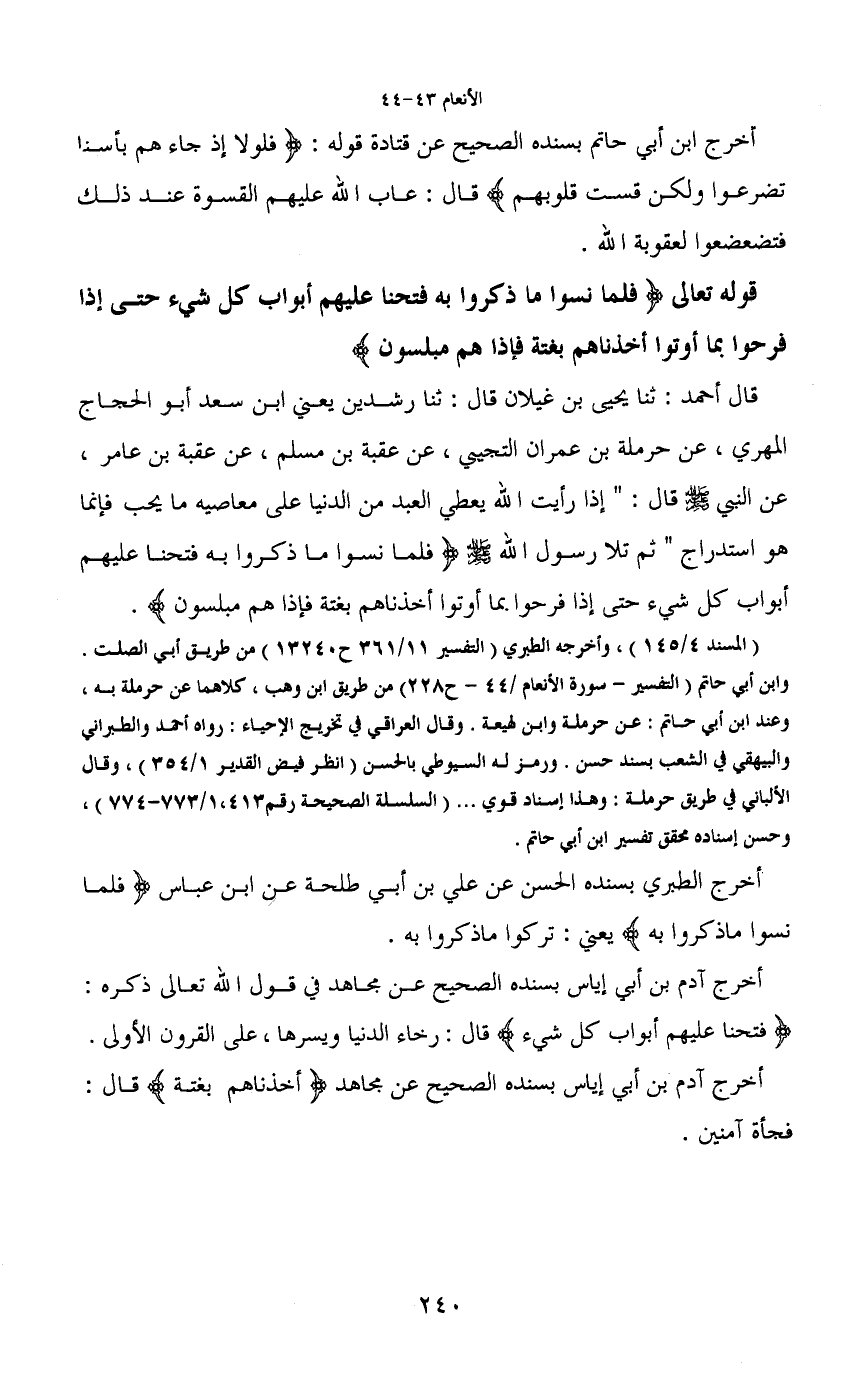 الأنعام ٤٣-٤٤
أخرج ابن أبي حاتم بسنده الصحيح عن قتادة قوله : ﴿ فلولا إذ جاء هم بأسنا
تضرعوا ولكن قست قلوبهم ﴾ قال : عاب الله عليهم القسوة عند ذلك
فتضعضعوا لعقوبة الله .
قوله تعالى ﴿ فلما نسوا ما ذكروا به فتحنا عليهم أبواب كل شيء حتى إذا
فرحوا بما أوتوا أخذناهم بغتة فإذا هم مبلسون ﴾
قال أحمد : ثنا يحيى بن غيلان قال : ثنا رشدين يعني ابن سعد أبو الحجاج
المهري ، عن حرملة بن عمران التجيبي ، عن عقبة بن مسلم ، عن عقبة بن عامر ،
عن النبي ﷺ قال : " إذا رأيت الله يعطي العبد من الدنيا على معاصيه ما يحب فإنما
هو استدراج " ثم تلا رسول الله ﷺ ﴿ فلما نسوا ما ذكروا به فتحنا عليهم
أبواب كل شيء حتى إذا فرحوا بما أوتوا أخذناهم بغتة فإذا هم مبلسون ﴾ .
( المسند ١٤٥/٤ ) ، وأخرجه الطبري ( التفسير ٣٦١/١١ ح١٣٢٤٠ ) من طريق أبي الصلت .
وابن أبي حاتم ( التفسير - سورة الأنعام /٤٤ - ح٢٢٨) من طريق ابن وهب ، كلاهما عن حرملة به ،
وعند ابن أبي حاتم : عن حرملة وابن لهيعة . وقال العراقي في تخريج الإحياء : رواه أحمد والطبراني
والبيهقي في الشعب بسند حسن . ورمز له السيوطي بالحسن ( انظر فيض القدير ٣٥٤/١ ) ، وقال
الألباني في طريق حرملة : وهذا إسناد قوي ... ( السلسلة الصحيحة رقم٤١٣ ،٧٧٣/١-٧٧٤ ) ،
وحسن إسناده محقق تفسير ابن أبي حاتم .
أخرج الطبري بسنده الحسن عن علي بن أبي طلحة عن ابن عباس ﴿ فلما
نسوا ماذكروا به ﴾ يعني : تركوا ماذكروا به .
أخرج آدم بن أبي إياس بسنده الصحيح عن مجاهد في قول الله تعالى ذكره :
﴿ فتحنا عليهم أبواب كل شيء ﴾ قال : رخاء الدنيا ويسرها ، على القرون الأولى .
أخرج آدم بن أبي إياس بسنده الصحيح عن مجاهد ﴿ أخذناهم بغتة ﴾ قال :
فجأة آمنين .
٢٤٠